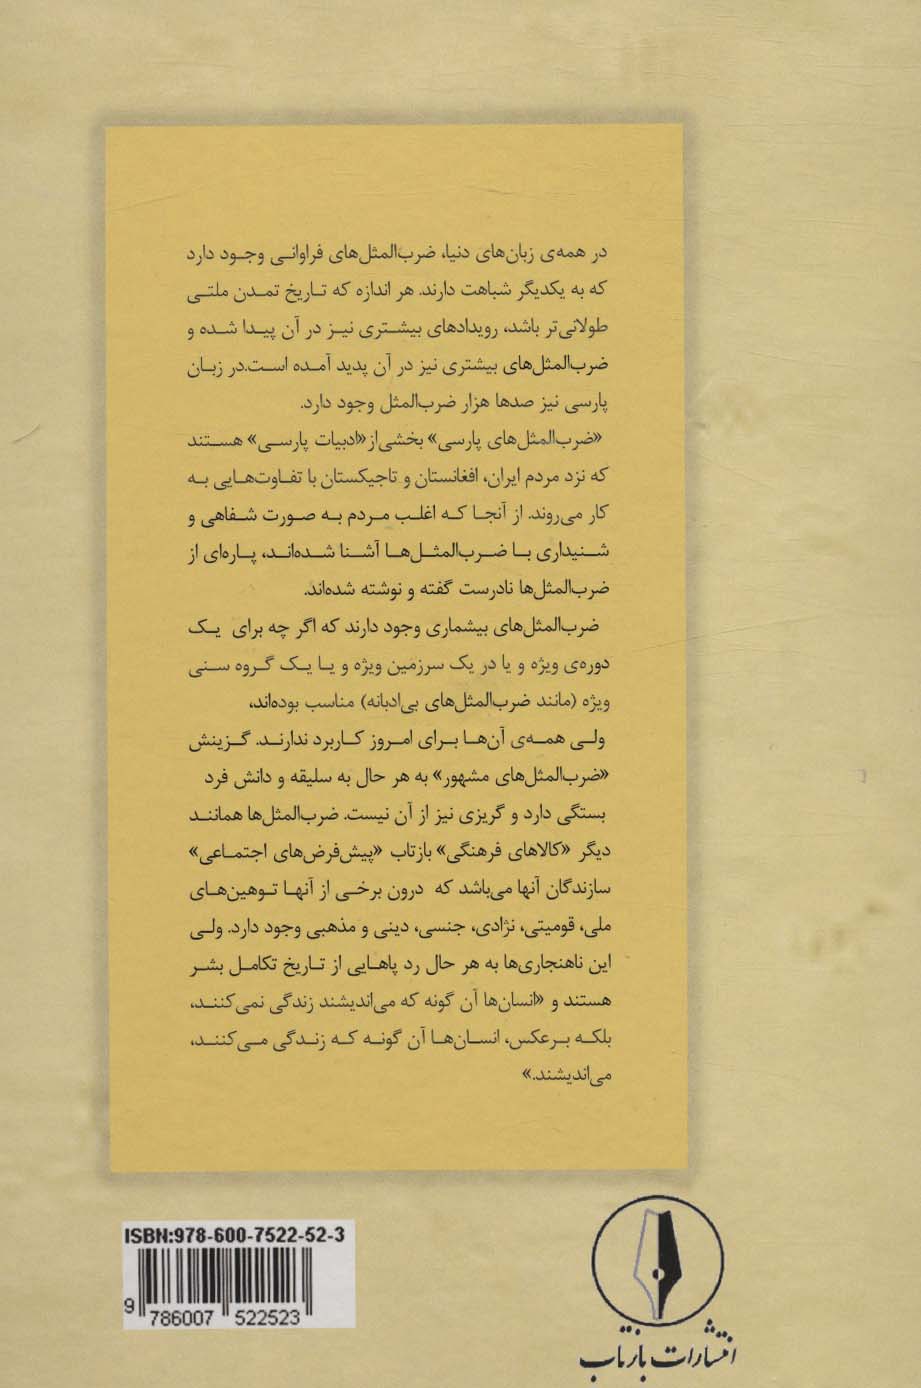 در همه‌ی زبان‌های دنیا، ضرب‌المثل‌های فراوانی وجود دارد
که به یکدیگر شباهت دارند. هر اندازه که تاریخ تمدن ملتی
طولانی‌تر باشد، رویدادهای بیشتری نیز در آن پیدا شده و
ضرب‌المثل‌های بیشتری نیز در آن پدید آمده است.در زبان
پارسی نیز صدها هزار ضرب‌المثل وجود دارد.
«ضرب‌المثل‌های پارسی» بخشی از «ادبیات پارسی» هستند
که نزد مردم ایران، افغانستان و تاجیکستان با تفاوت‌هایی به
کار می‌روند. از آنجا که اغلب مردم به صورت شفاهی و
شنیداری با ضرب‌المثل‌ها آشنا شده‌اند، پاره‌ای از
ضرب‌المثل‌ها نادرست گفته و نوشته شده‌اند.
ضرب‌المثل‌های بیشماری وجود دارند که اگر چه برای یک
دوره‌ی ویژه و یا در یک سرزمین ویژه و یا یک گروه سنی
ویژه (مانند ضرب‌المثل‌های بی‌ادبانه) مناسب بوده‌اند،
ولی همه‌ی آن‌ها برای امروز کاربرد ندارند. گزینش
«ضرب‌المثل‌های مشهور» به هر حال به سلیقه و دانش فرد
بستگی دارد و گریزی نیز از آن نیست. ضرب‌المثل‌ها همانند
دیگر «کالاهای فرهنگی» بازتاب «پیش‌فرض‌های اجتماعی»
سازندگان آنها می‌باشد که درون برخی از آنها توهین‌های
ملی، قومیتی، نژادی، جنسی، دینی و مذهبی وجود دارد. ولی
این ناهنجاری‌ها به هر حال رد پاهایی از تاریخ تکامل بشر
هستند و «انسان‌ها آن گونه که می‌اندیشند زندگی نمی‌کنند،
بلکه برعکس، انسان‌ها آن گونه که زندگی می‌کنند،
می‌اندیشند.»
ISBN:978-600-7522-52-3
9 786007 522523
انتشارات بازتاب